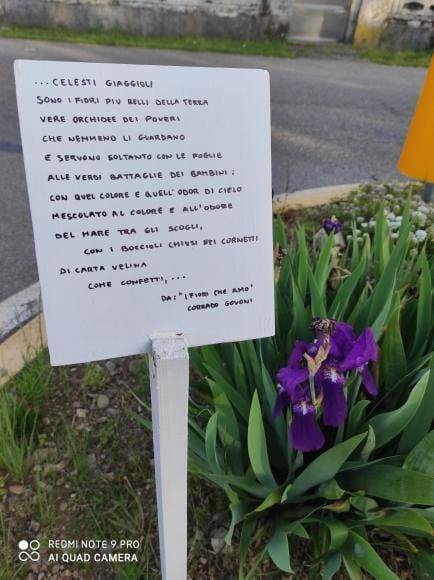 ...CELESTI GIAGGIOLI
SONO I FIORI PIU BELLI DELLA TERRA
VERE ORCHIDEE DEI POVERI
CHE NEMMENO LI GUARDANO
E SERVONO SOLTANTO CON LE FOGLIE
ALLE VERDI BATTAGLIE DEI BAMBINI;
CON QUEL COLORE E QUELL'ODOR DI CIELO
MESCOLATO AL COLORE E ALL'ODORE
DEL MARE TRA GLI SCOGLI,
CON I BOCCIOLI CHIUSI NEI CORNETTI
DI CARTA VELINA
COME CONFETTI,...
DA: "I FIORI CHE AMO"
CORRADO GOVONI
REDMI NOTE 9 PRO
AI QUAD CAMERA